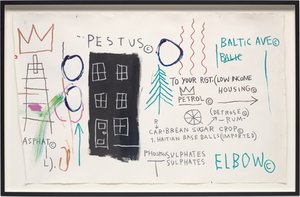 PESTUS©
BALTIC AVE©
BALTIC
TO YOUR RGT. (LOW INCOME
HOUSING©
PETROL©
(DETROSE©
→ RUM-
CARIBBEAN SUGAR CROP©
1. HAITIAN BASE BALLS (IMPORTED)
SULPHATES
SULPHATES
ELBOW©
ASPHAT©
L).